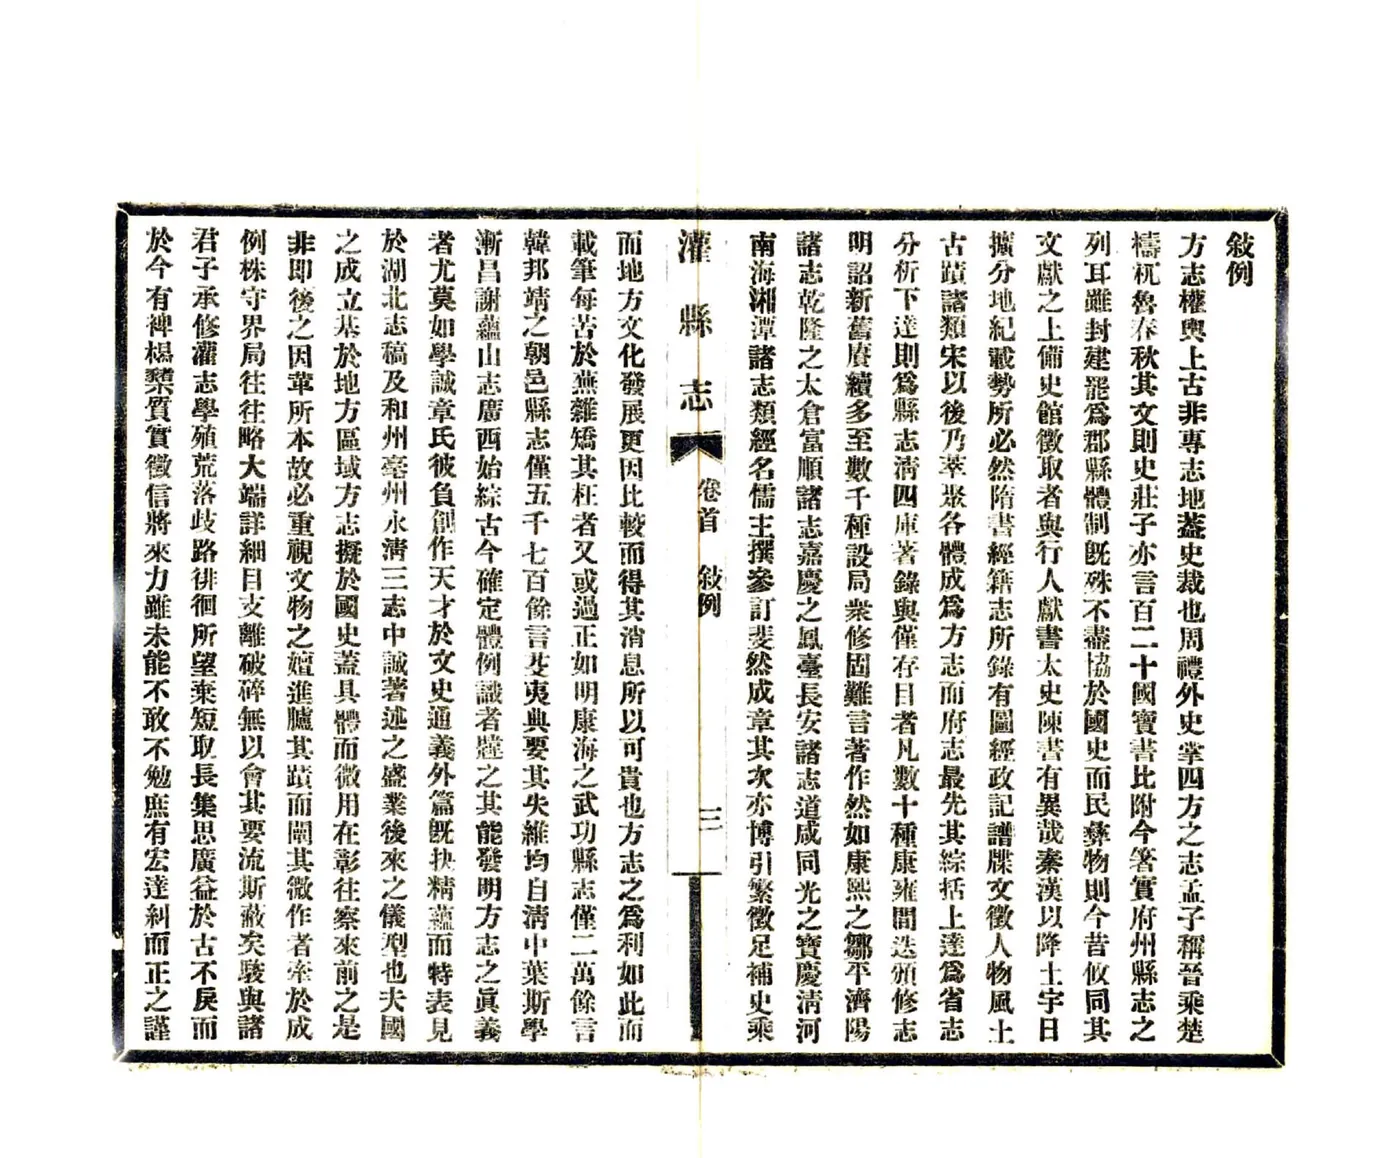 敍例
方志權輿上古非專志地蓋史裁也周禮外史掌四方之志孟子稱晉乘楚
檮杌魯春秋其文則史莊子亦言百二十國寶書比附今著實府州縣志之
列耳雖封建罷爲郡縣體制旣殊不盡協於國史而民彝物則今昔攸同其
文獻之上備史館徵取者與行人獻書太史陳書有異哉秦漢以降土宇日
擴分地紀載勢所必然隋書經籍志所錄有圖經政記譜牒文徵人物風土
古蹟諸類宋以後乃萃聚各體成爲方志而府志最先其綜括上達爲省志
分析下達則爲縣志淸四庫著錄與僅存目者凡數十種康雍間迭頒修志
明詔新舊賡續多至數千種設局衆修固難言著作然如康熙之鄒平濟陽
諸志乾隆之太倉富順諸志嘉慶之鳳臺長安諸志道咸同光之寶慶淸河
南海湘潭諸志類經名儒主撰參訂斐然成章其次亦博引繁徵足補史乘
灌縣志 卷首 敍例 三
而地方文化發展更因比較而得其消息所以可貴也方志之爲利如此而
載筆每苦於蕪雜矯其枉者又或過正如明康海之武功縣志僅二萬餘言
韓邦靖之朝邑縣志僅五千七百餘言芟夷典要其失維均自淸中葉斯學
漸昌謝蘊山志廣西始綜古今確定體例識者韙之其能發明方志之眞義
者尤莫如學誠章氏彼負創作天才於文史通義外篇旣抉精蘊而特表見
於湖北志稿及和州亳州永淸三志中誠著述之盛業後來之儀型也夫國
之成立基於地方區域方志擬於國史蓋具體而微用在彰往察來前之是
非卽後之因革所本故必重視文物之嬗進臚其蹟而闡其微作者率於成
例株守界局往往略大端詳細目支離破碎無以會其要流斯蔽矣駿與諸
君子承修灌志學殖荒落歧路徘徊所望乘短取長集思廣益於古不戾而
於今有裨楬櫫質質徵信將來力雖未能不敢不勉庶有宏達糾而正之謹